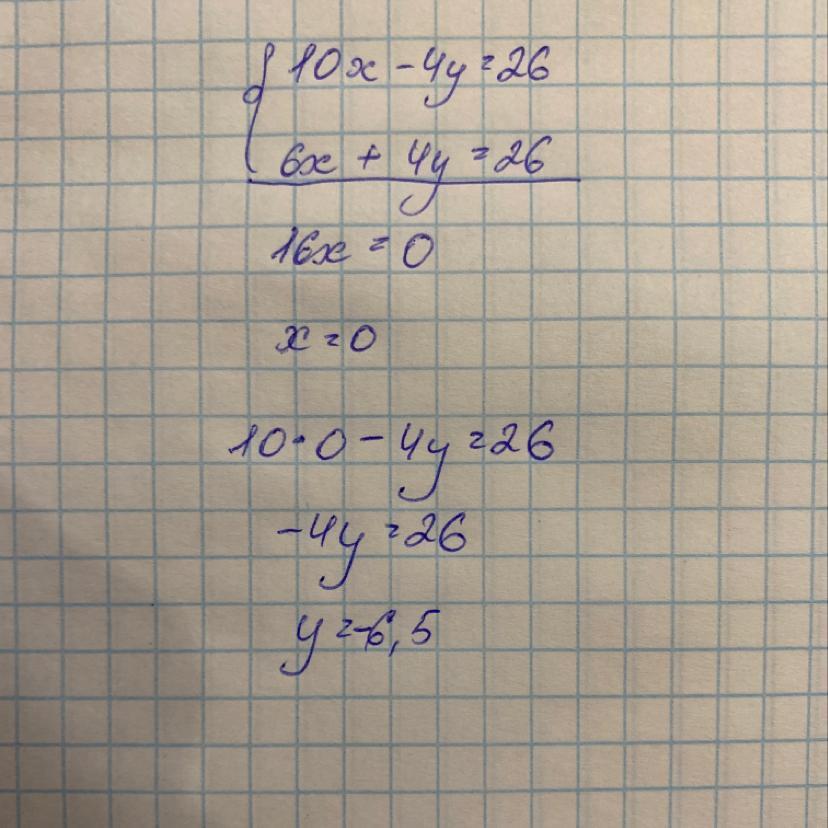 10x - 4y = 26
6x + 4y = 26
16x = 0
x = 0
10 · 0 - 4y = 26
-4y = 26
y = -6,5